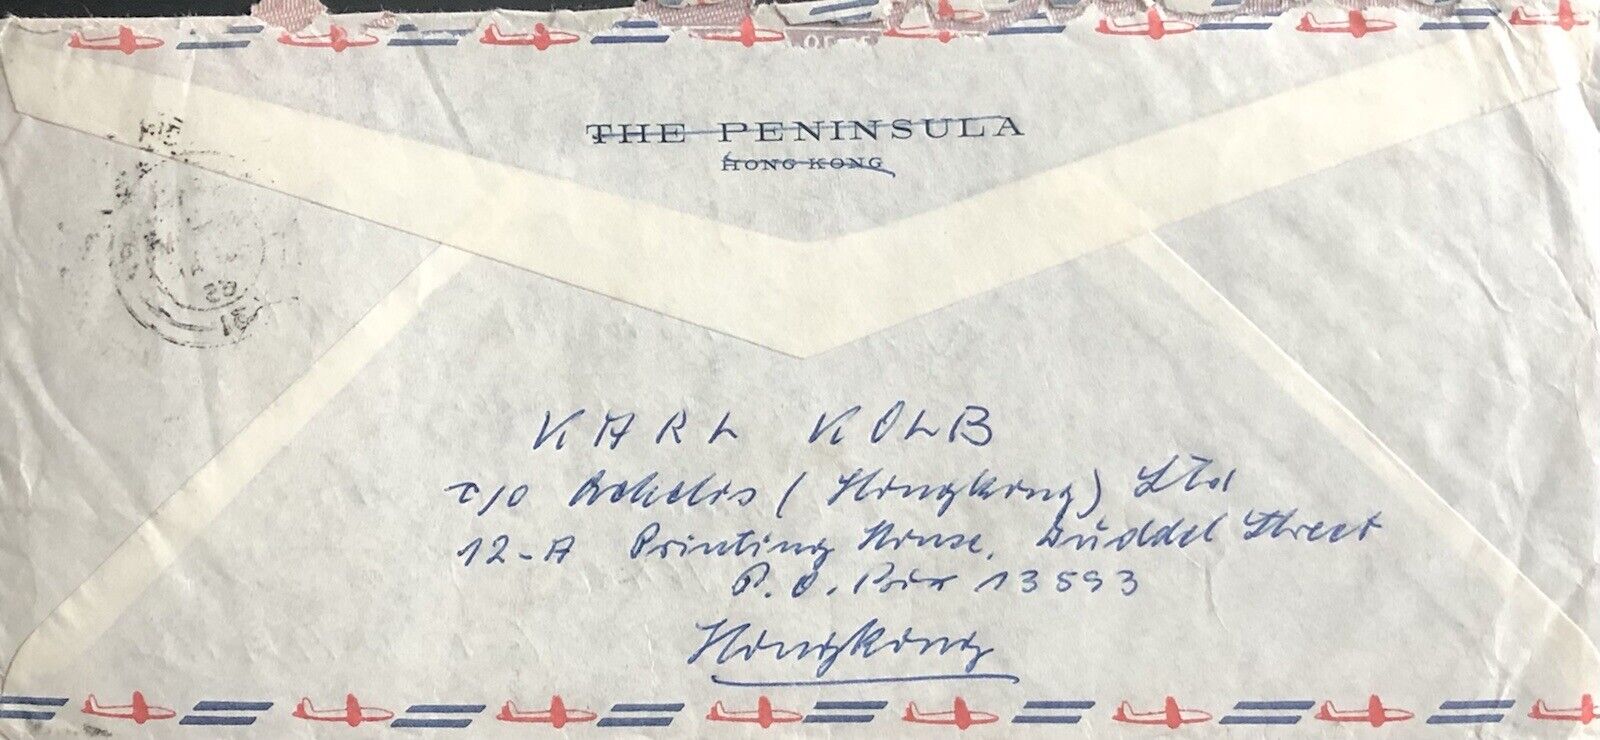 THE PENINSULA
HONG KONG
KARL KOLB
c/o Achelis (Hongkong) Ltd
12-A Printing House, Duddel Street
P.O. Box 13593
Hongkong